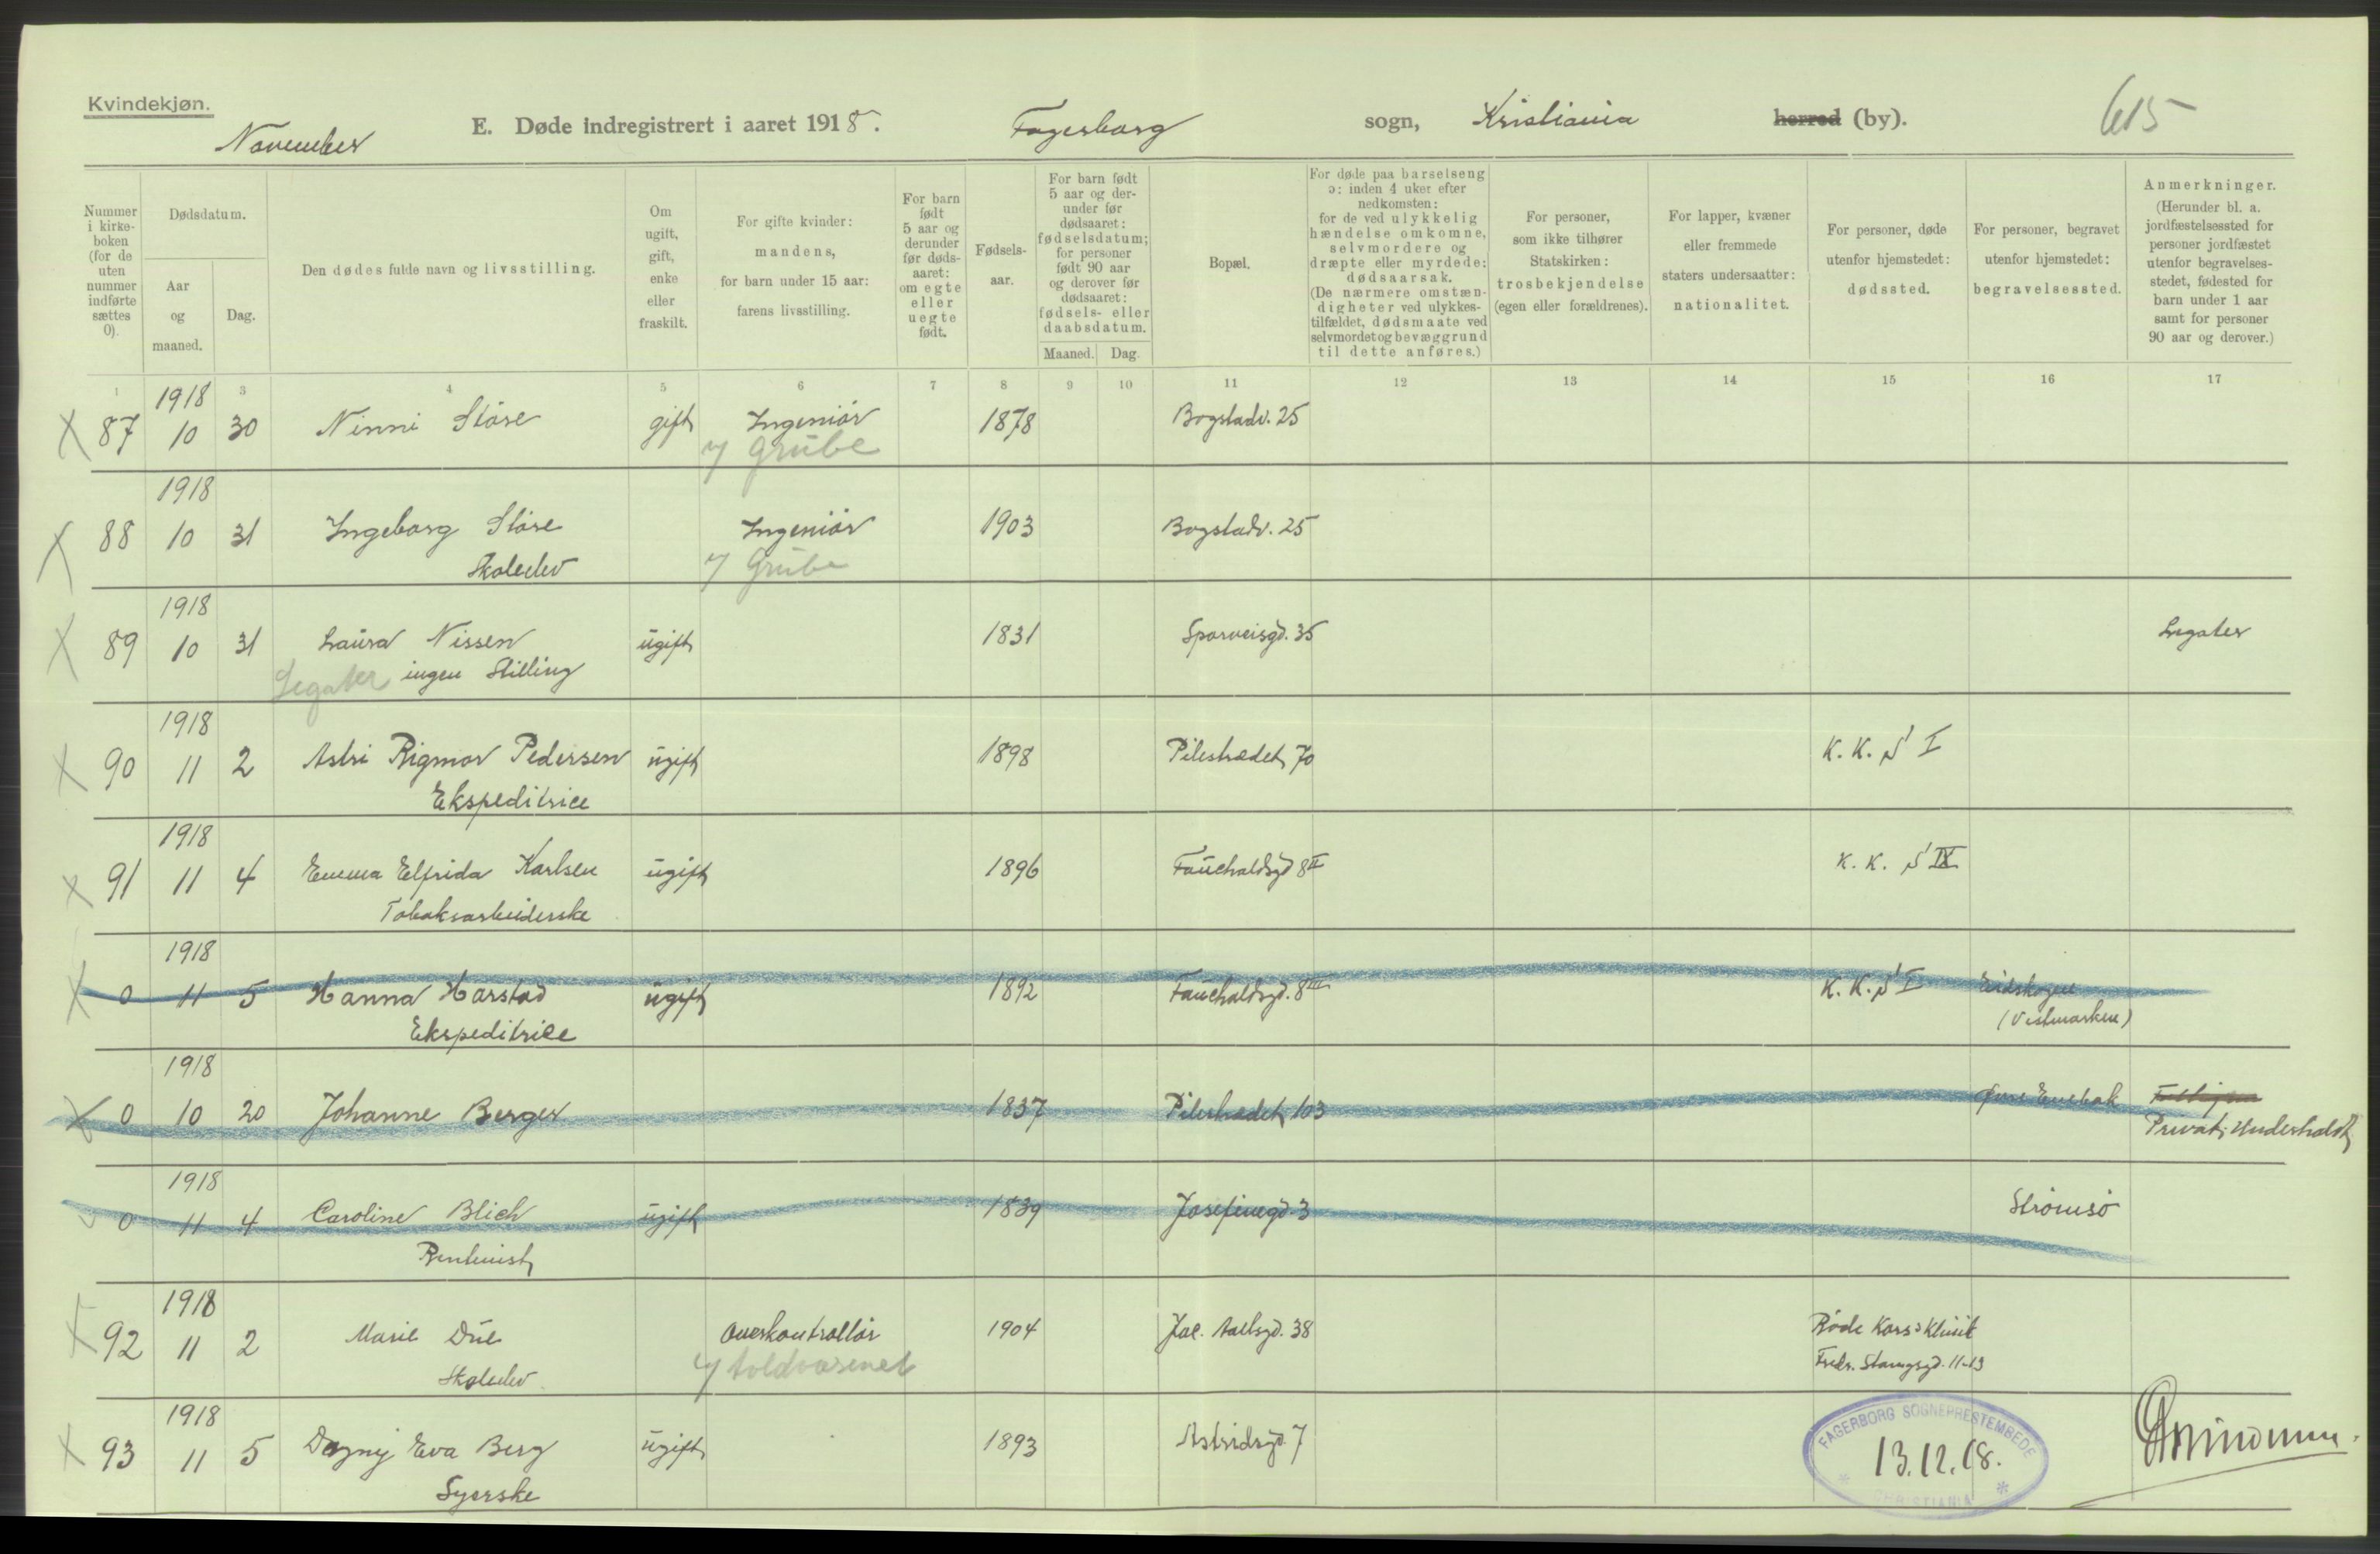 Kvindekjøn.
November
E. Døde indregistrert i aaret 1918.
Fagerborg sogn, Kristiania herred (by).
615
Nummer i kirke-boken (for de uten nummer indførte sættes 0).
Dødsdatum.
Aar og maaned.
Dag.
Den dødes fulde navn og livsstilling.
Om ugift, gift, enke eller fraskilt.
For gifte kvinder: mandens, for barn under 15 aar: farens livsstilling.
For barn født 5 aar og derunder før døds-aaret: om egte eller uegte født.
Fødsels-aar.
For barn født 5 aar og der-under før dødsaaret: fødselsdatum; for personer født 90 aar og derover før dødsaaret: fødsels- eller daabsdatum.
Maaned. Dag.
Bopæl.
For døde paa barselseng ɔ: inden 4 uker efter nedkomsten: for de ved ulykkelig hændelse omkomne, selvmordere og dræpte eller myrdede: dødsaarsak. (De nærmere omstæn-digheter ved ulykkes-tilfældet, dødsmaate ved selvmordet og bevæggrund til dette anføres.)
For personer, som ikke tilhører Statskirken: trosbekjendelse (egen eller forældrenes).
For lapper, kvæner eller fremmede staters undersaatter: nationalitet.
For personer, døde utenfor hjemstedet: dødssted.
For personer, begravet utenfor hjemstedet: begravelsessted.
Anmerkninger. (Herunder bl. a. jordfæstelsessted for personer jordfæstet utenfor begravelses-stedet, fødested for barn under 1 aar samt for personer 90 aar og derover.)
1 3 4 5 6 7 8 9 10 11 12 13 14 15 16 17
1918
X 87 10 30 Ninni Støre gift Ingeniør 1878 Bogstadv. 25
v/ Grube
1918
X 88 10 31 Ingeborg Støre Ingeniør 1903 Bogstadv. 25
Skoleelev v/ Grube
1918
X 89 10 31 Laura Nissen ugift 1831 Sporveisgd. 35 Legater
Legater ingen Stilling
1918
X 90 11 2 Astri Rigmor Pedersen ugift 1898 Pilestrædet 70 K. K. S I
Ekspeditrice
1918
X 91 11 4 Emma Elfrida Karlsen ugift 1896 Fauchaldsgd 8 II K. K. S IX
Tobaksarbeiderske
1918
X 0 11 5 Hanna Harstad ugift 1892 Fauchaldsgd. 8 III K. K. S I Eidskogen
Ekspeditrice (Vestmarken)
1918
X 0 10 20 Johanne Berger 1837 Pilestrædet 103 Øvre Enebak
Privat Underholdt
1918
0 11 4 Caroline Blich ugift 1839 Josefinegd. 3 Strømsø
Rentenist
1918
X 92 11 2 Marie Due Overkontrollør 1904 Jac. Aallsgd. 38 Røde Kors's Klinik
Skoleelev v/ toldvæsenet Fredr. Stangsgd. 11-13
1918
X 93 11 5 Dagny Eva Berg ugift 1893 Astridsgd. 7
Syerske
FAGERBORG SOGNEPRESTEMBEDE
13.12.18.
CHRISTIANIA